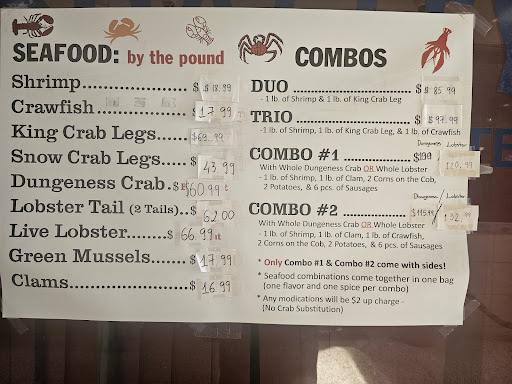 SEAFOOD: by the pound
Shrimp.................... $ $ 18.99
Crawfish ................. $ 17.99
King Crab Legs...... $69.99
Snow Crab Legs..... $ 43.99
Dungeness Crab.$ 60.99
Lobster Tail (2 Tails)..$ 62.00
Live Lobster.......$ 66.99
Green Mussels......$ 17.99
Clams.....................$ 16.99
COMBOS
DUO ................................ $ $ 85.99
- 1 lb. of Shrimp & 1 lb. of King Crab Leg
TRIO ................................ $ $ 97.99
- 1 lb. of Shrimp, 1 lb. of King Crab Leg, & 1 lb. of Crawfish
Dungeness Lobster
COMBO #1 ................... $109 / 120.99
With Whole Dungeness Crab OR Whole Lobster
- 1 lb. of Shrimp, 1 lb. of Clam, 2 Corns on the Cob,
2 Potatoes, & 6 pcs. of Sausages
Dungeness Lobster
COMBO #2 ................. $115.99 / 132.99
With Whole Dungeness Crab OR Whole Lobster
- 1 lb. of Shrimp, 1 lb. of Clam, 1 lb. of Crawfish,
2 Corns on the Cob, 2 Potatoes, & 6 pcs. of Sausages
* Only Combo #1 & Combo #2 come with sides!
* Seafood combinations come together in one bag
(one flavor and one spice per combo)
* Any modications will be $2 up charge -
(No Crab Substitution)